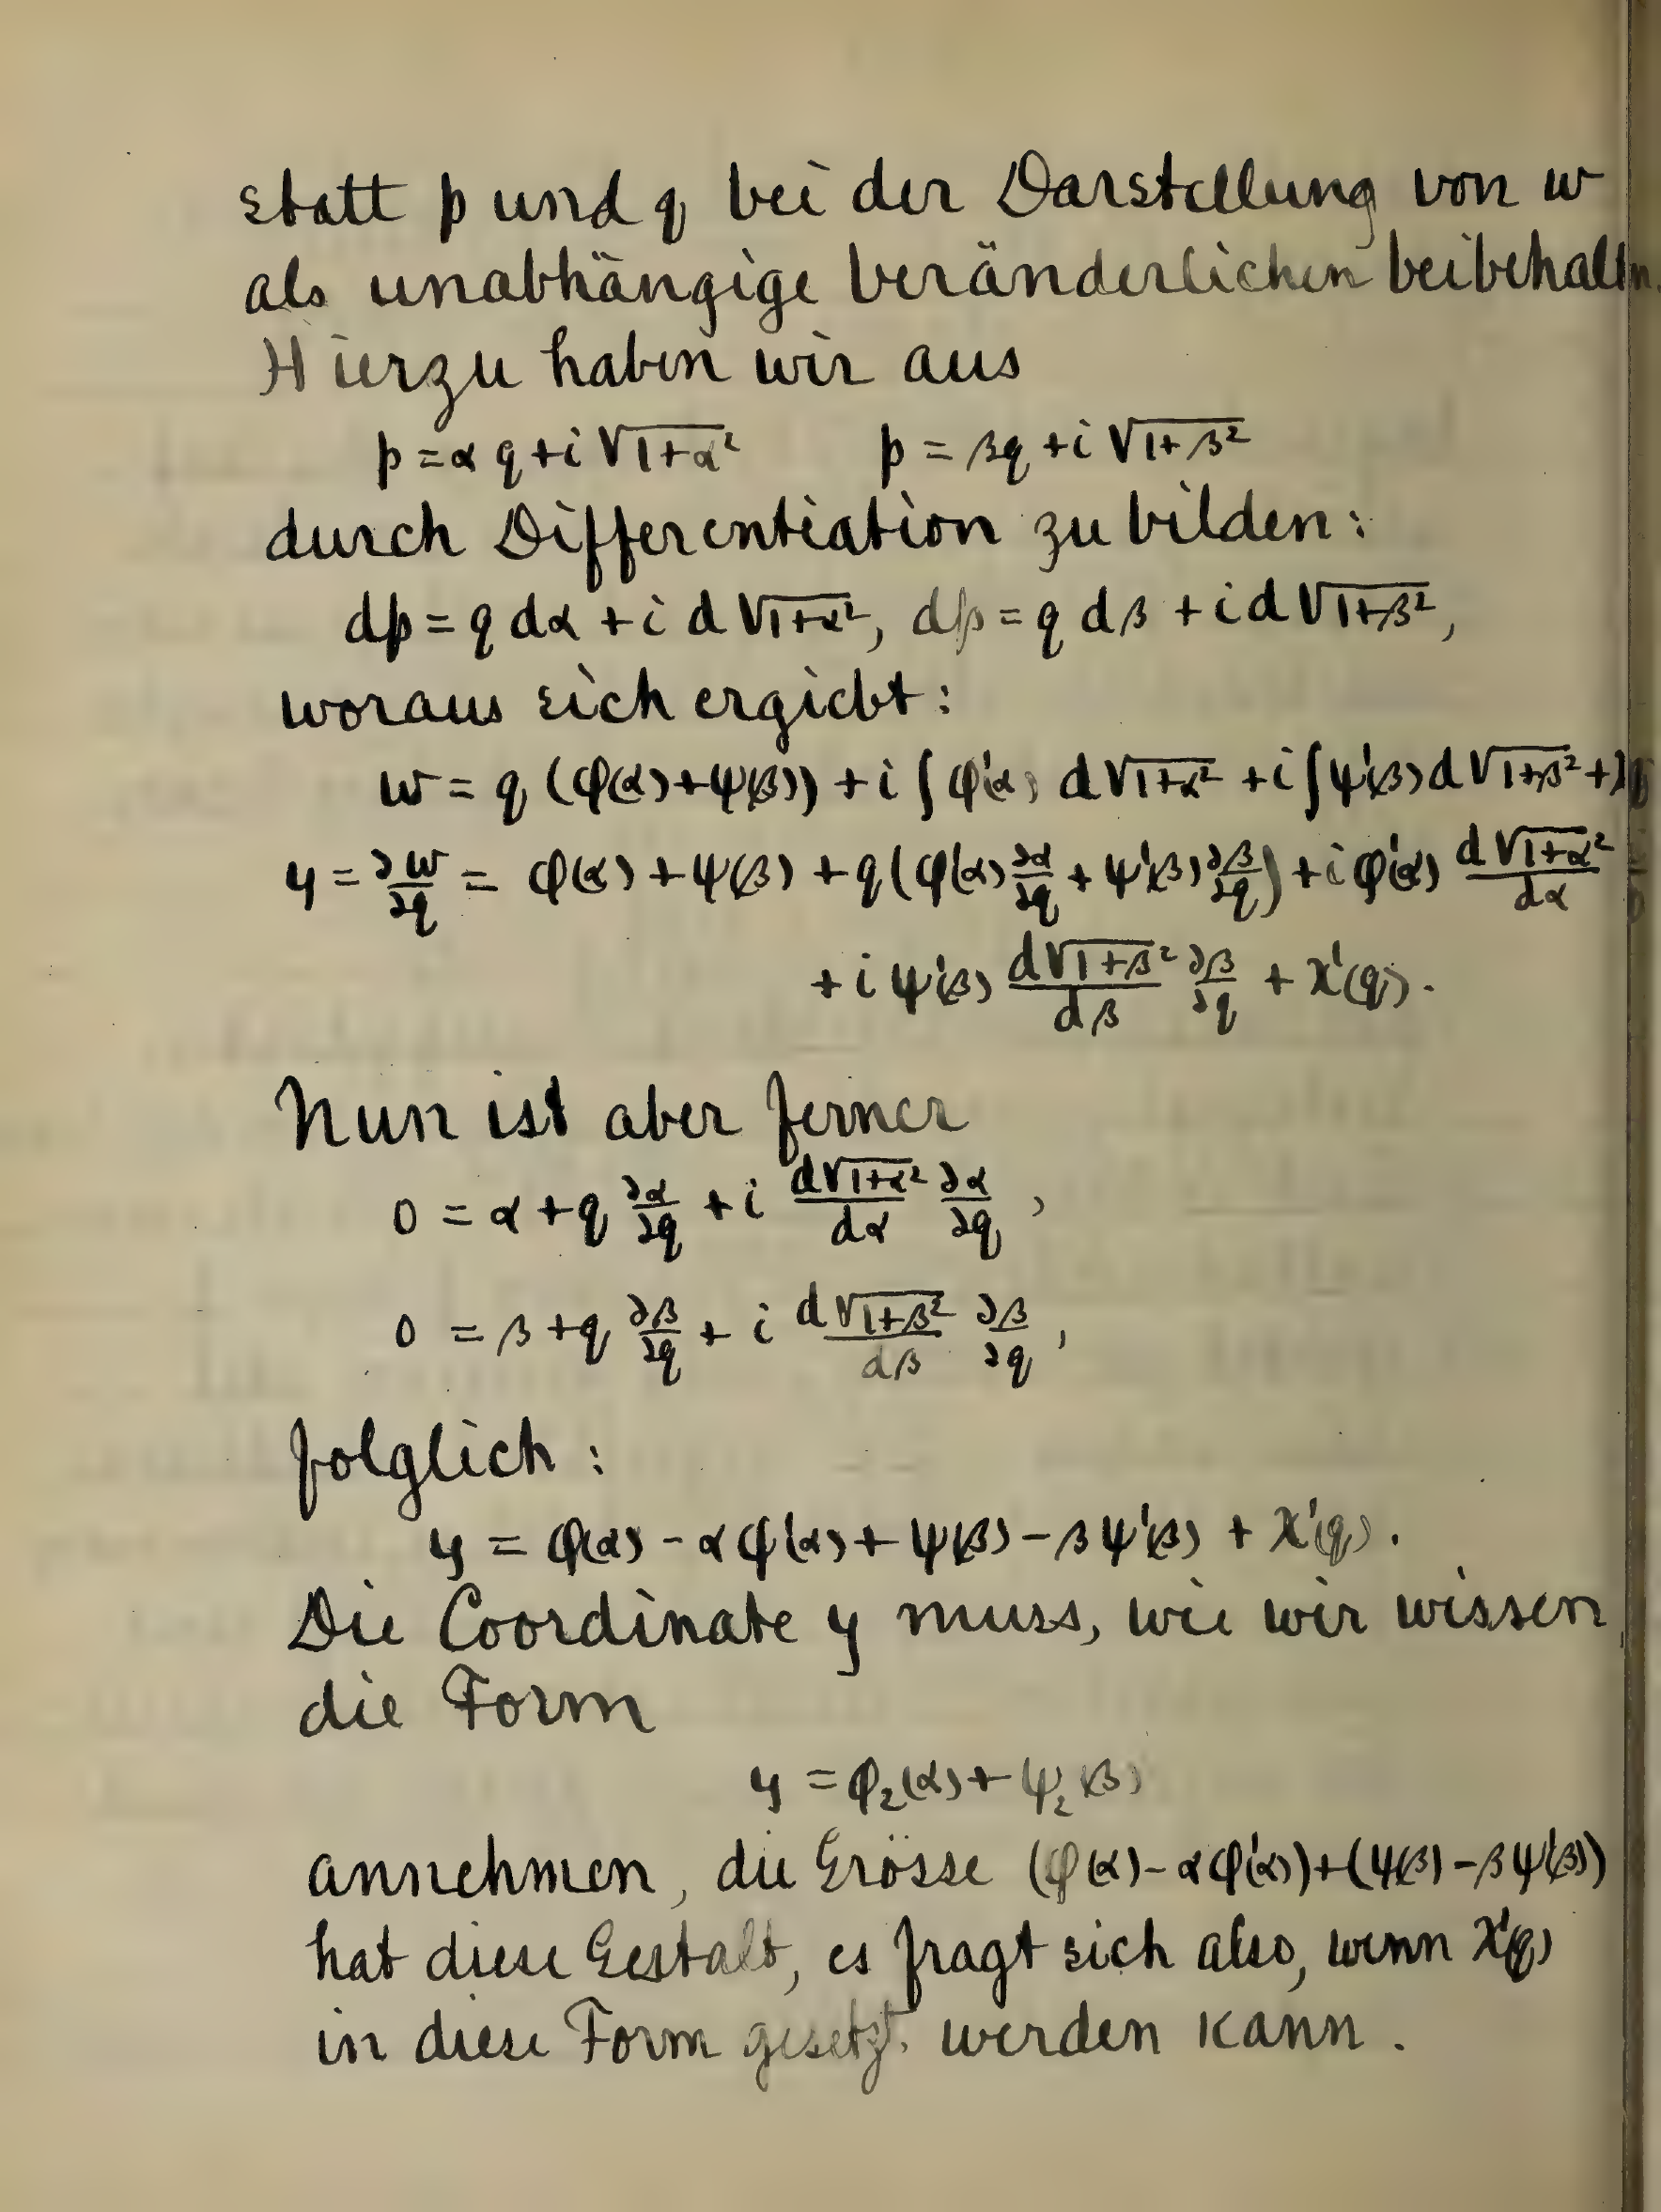 statt p und q bei der Darstellung von w
als unabhängige Veränderlichen beibehalten.
Hierzu haben wir aus
p = α q + i √(1+α²)    p = βq + i √(1+β²)
durch Differentiation zu bilden:
dp = q dα + i d √(1+α²), dp = q dβ + i d √(1+β²),
woraus sich ergiebt:
w = q (φ(α)+ψ(β)) + i ∫ φ'(α) d√(1+α²) + i ∫ ψ'(β) d√(1+β²) +
y = ∂w/∂q = φ(α) + ψ(β) + q (φ'(α) ∂α/∂q + ψ'(β) ∂β/∂q) + i φ'(α) d√(1+α²)/dα
+ i ψ'(β) d√(1+β²)/dβ ∂β/∂q + χ'(q).
Nun ist aber ferner
0 = α + q ∂α/∂q + i d√(1+α²)/dα ∂α/∂q ,
0 = β + q ∂β/∂q + i d√(1+β²)/dβ ∂β/∂q ,
folglich :
y = φ(α) - α φ'(α) + ψ(β) - β ψ'(β) + χ'(q).
Die Coordinate y muss, wie wir wissen,
die Form
y = φ₂(α) + ψ₂(β)
annehmen, die Grösse (φ(α) - α φ'(α)) + (ψ(β) - β ψ'(β))
hat diese Gestalt, es fragt sich also, wenn χ'(q)
in diese Form gesetzt werden kann.